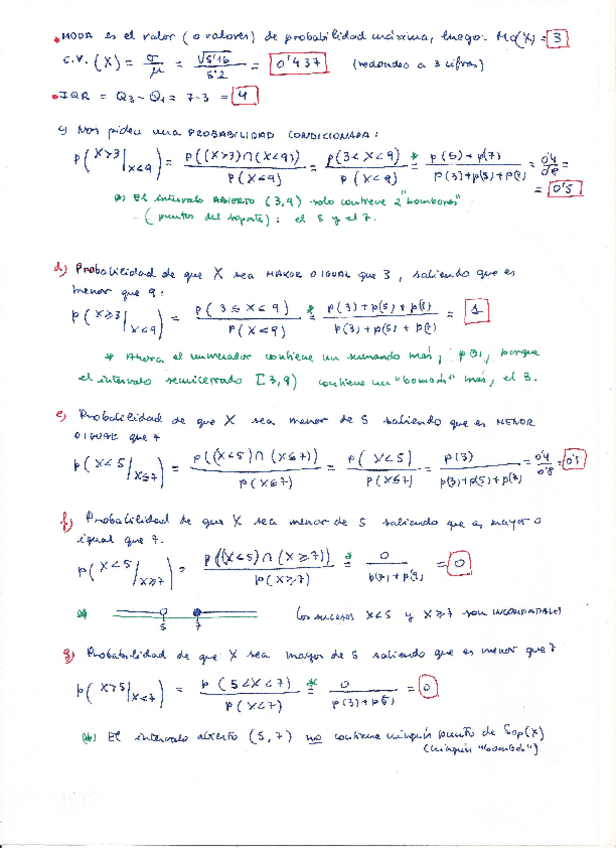 • MODA es el valor (o valores) de probabilidad máxima, luego: Mo(X) = 3
C.V. (X) = σ/μ = √5'16/5'2 = 0'437 (redondeo a 3 cifras)
• IQR = Q3 - Q1 = 7-3 = 4
c) Nos piden una PROBABILIDAD CONDICIONADA:
p(X>3/X<9) = p((X>3)∩(X<9))/p(X<9) = p(3<X<9)/p(X<9) * = p(5)+p(7)/p(3)+p(5)+p(7) = 0'4/0'8 =
= 0'5
(*) El intervalo ABIERTO (3,9) solo contiene 2 "bombones"
(puntos del soporte): el 5 y el 7.
d) Probabilidad de que X sea MAYOR O IGUAL que 3, sabiendo que es
menor que 9:
p(X≥3/X<9) = p(3≤X<9)/p(X<9) * = p(3)+p(5)+p(7)/p(3)+p(5)+p(7) = 1
* Ahora el numerador contiene un sumando más, p(3), porque
el intervalo semicerrado [3,9) contiene un "bombón" más, el 3.
e) Probabilidad de que X sea menor de 5 sabiendo que es MENOR
O IGUAL que 7
p(X<5/X≤7) = p((X<5)∩(X≤7))/p(X≤7) = p(X<5)/p(X≤7) = p(3)/p(3)+p(5)+p(7) = 0'4/0'8 = 0'5
f) Probabilidad de que X sea menor de 5 sabiendo que es mayor o
igual que 7.
p(X<5/X≥7) = p((X<5)∩(X≥7))/p(X≥7) * = 0/p(7)+p(9) = 0
(*) 5 7 Los sucesos X<5 y X≥7 son INCOMPATIBLES
g) Probabilidad de que X sea mayor de 5 sabiendo que es menor que 7
p(X>5/X<7) = p(5<X<7)/p(X<7) * = 0/p(3)+p(5) = 0
(*) El intervalo abierto (5,7) no contiene ningún punto de Sop(X)
(ningún "bombón")